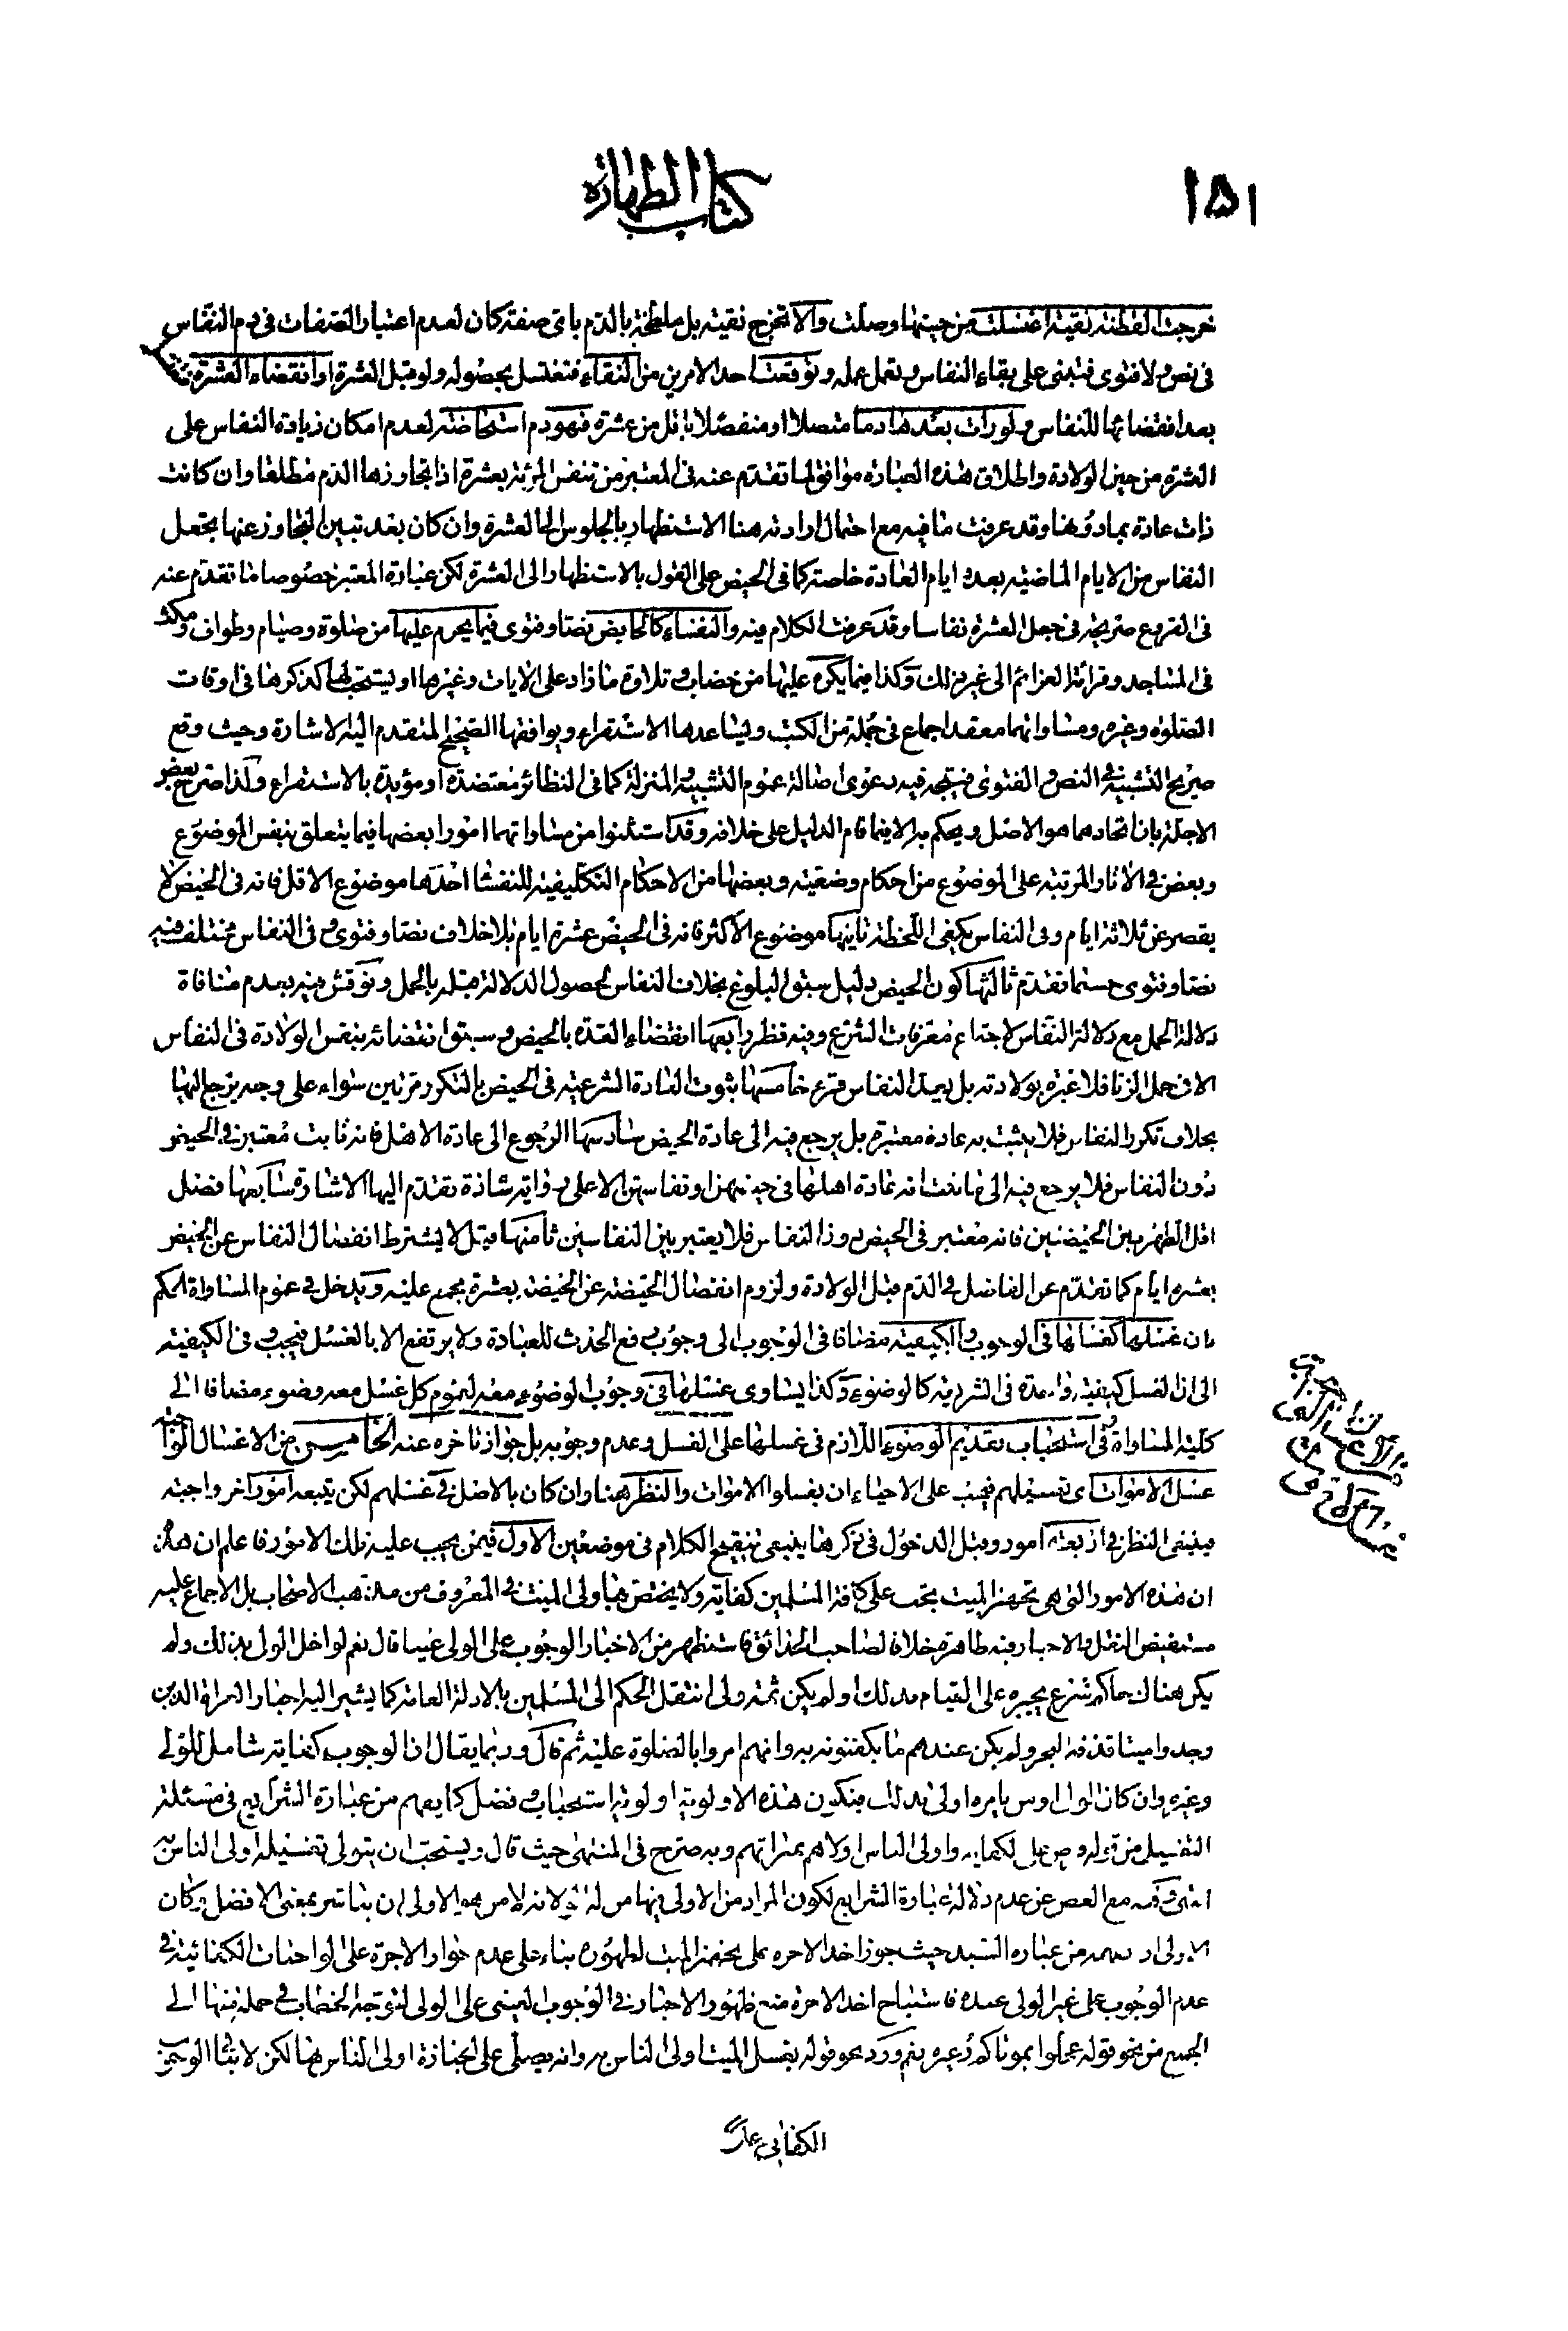 ١٥١
كتاب الطهارة
خرجت القطنة نقية اغتسلت من حينها وصلت والا تخرج نقية بل ملطخة بالدم باى صفة كان لعدم اعتبار الصفات فى دم النفاس
فى نص ولا فتوى فتبنى على بقاء النفاس وتعمل عمله وتوقعت احد الامرين من النقاء فتغتسل بحصوله ولو قبل العشرة او انقضاء العشرة
بعد انقضائها للنفاس ولو رات بعدها دما متصلا او منفصلا باقل من عشرة فهو دم استحاضة لعدم امكان زيادة النفاس على
العشرة من حين الولادة واطلاق هذه العبارة موافق لما تقدم عنه فى المعتبر من تنفس المرئة بعشرة اذا تجاوزها الدم مطلقا وان كانت
ذات عادة بما دونها وقد عرفت ما فيه مع احتمال ارادته هنا الاستظهار بالجلوس الى العشرة وان كان بعد تبين التجاوز عنها يجعل
النفاس من الايام الماضية بعدد ايام العادة خاصة كما فى الحيض على القول بالاستظهار الى العشرة لكن عبارة المعتبر خصوصا ما تقدم عنه
فى الفروع صريحة فى جعل العشرة نفاسا وقد عرفت الكلام فيه والنفساء كالحايض نصا وفتوى فيما يحرم عليها من صلوة وصيام وطواف ومكث
فى المساجد وقرائة العزائم الى غير ذلك وكذا فيما يكره عليها من خضاب وتلاوة ما زاد على الايات وغيرها او يستحب لها كذكرها فى اوقات
الصلوة وغيره ومساواتهما معقد اجماع فى جملة من الكتب ويساعدها الاستقراء ويوافقها الصحيح المتقدم اليه الاشارة وحيث وقع
صريح التشبيه فى النص والفتوى فيتجه فيه دعوى اصالة عموم التشبيه والمنزلة كما فى النظائر معتضدة او مؤيدة بالاستقراء ولذا صرح بعض
الاجلة بان اتحادهما هو الاصل ويحكم به الا فيما قام الدليل على خلافه وقد استثنوا من مساواتهما امورا بعضها فيما يتعلق بنفس الموضوع
وبعض فى الاثار المرتبة على الموضوع من احكام وضعية وبعضها من الاحكام التكليفية للنفسا احدها موضوع الاقل فانه فى الحيض لا
يقصر عن ثلاثة ايام وفى النفاس يكفى اللحظة ثانيها موضوع الاكثر فانه فى الحيض عشرة ايام بلا خلاف نصا وفتوى وفى النفاس مختلف فيه
نصا وفتوى حسبما تقدم ثالثها كون الحيض دليل سبق البلوغ بخلاف النفاس لحصول الدلالة قبله بالحمل ونوقش فيه بعدم منافاة
دلالة الحمل مع دلالة النفاس لاجتماع معرفات الشرع وفيه نظر رابعها انقضاء العدة بالحيض وسبق انقضائه بنفس الولادة فى النفاس
الا فى حمل الزنا فلا عبرة بولادته بل بعد النفاس قرء خامسها ثبوت العادة الشرعية فى الحيض بالتكرر مرتين سواء على وجه يرجع اليها
بخلاف تكرر النفاس فلا يثبت به عادة معتبرة بل يرجع فيه الى عادة الحيض سادسها الرجوع الى عادة الاهل فانه ثابت معتبر فى الحيض
دون النفاس فلا يرجع فيه الى عادة اهلها فى حيضهن او نفاسهن الا على رواية شاذة تقدم اليها الاشارة سابعها فصل
اقل الطهر بين الحيضتين فانه معتبر فى الحيض دون النفاس فلا يعتبر بين النفاسين ثامنها قيل لا يشترط انفصال النفاس عن الحيض
بعشرة ايام كما تقدم عن الفاضل فى الدم قبل الولادة ولزوم انفصال الحيضة عن الحيضة بعشرة مجمع عليه ويدخل فى عموم المساواة الحكم
بان غسلها كغسلها فى الوجوب والكيفية مضافا فى الوجوب الى وجوب رفع الحدث للعبادة ولا يرتفع الا بالغسل فيجب وفى الكيفية
الى ان الغسل كيفية واحدة فى الشريعة كالوضوء وكذا يساوى غسلها فى وجوب الوضوء معه لعموم كل غسل معه وضوء مضافا الى
كلية المساواة وفى استحباب تقديم الوضوء اللازم فى غسلها على الغسل وعدم وجوبه بل جواز تاخره عنه الخامس من الاغسال الواجبة
غسل الاموات اى تغسيلهم فيجب على الاحياء ان يغسلوا الاموات والنظر هنا وان كان بالاصل فى غسلهم لكن يتبعه امور اخر واجبة
فينبغى النظر فى اربعة امور وقبل الدخول فى ذكرها ينبغى تنقيح الكلام فى موضعين الاول فيمن يجب عليه تلك الامور فاعلم ان هذه
ان هذه الامور التى هى تجهيز الميت يجب على كافة المسلمين كفاية ولا يختص بها ولى الميت فى المعروف من مذهب الاصحاب بل الاجماع عليه
مستفيض النقل والاخبار فيه ظاهرة خلافا لصاحب الحدائق فاستظهر من الاخبار الوجوب على الولى عينيا قال نعم لو اخل الولى بذلك ولم
يكن هناك حاكم شرع يجبره على القيام بذلك او لم يكن ثمة ولى انتقل الحكم الى المسلمين بالادلة العامة كما يشير اليه اخبار العراة الذين
وجدوا ميتا قذفه البحر ولم يكن عندهم ما يكفنونه به وانهم امروا بالصلوة عليه ثم قال وربما يقال ان الوجوب كفاية شامل للولى
وغيره وان كان الولى او من يامره اولى بذلك فيكون هذه الاولوية اولوية استحباب وفضل كما يفهم من عبارة الشرايع فى مسئلة
التغسيل من قوله وهو فرض على الكفاية واولى الناس به اولاهم بميراثهم وبه صرح فى المنتهى حيث قال ويستحب ان يتولى تغسيله اولى الناس به
عدم الوجوب على غير الولى عنده فاستباح اخذ الاجرة منع ظهور الاخبار فى الوجوب العينى على الولى لتوجه الخطاب فى جملة منها الى
الجميع من نحو قوله عجلوا بموتاكم وغيره نعم ورد نحو قوله يغسل الميت اولى الناس به وانه يصلى على الجنازة اولى الناس بها لكن لا ينافى الوجوب
الكفائى